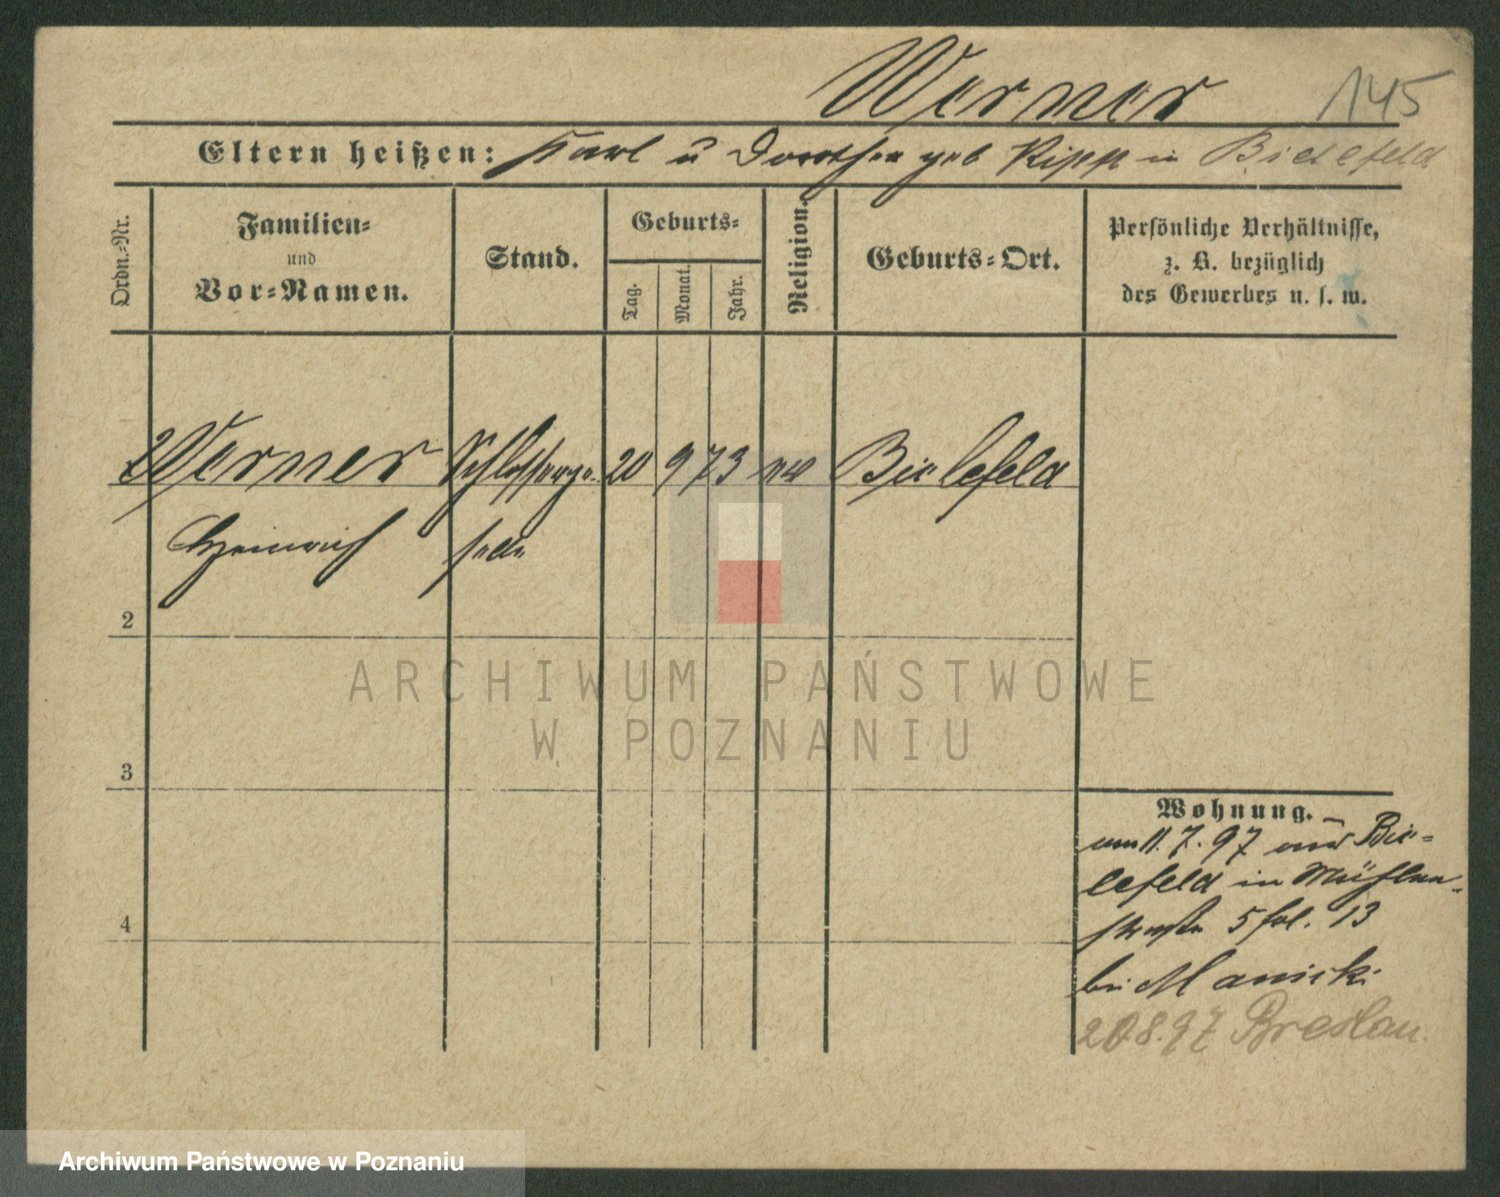 Werner 145
Eltern heißen: Karl u Dorothea geb Kipp in Bielefeld
Ordn.-Nr.
Familien-
und
Vor-Namen.
Stand.
Geburts-
Tag.
Monat.
Jahr.
Religion.
Geburts-Ort.
Persönliche Verhältnisse,
z. B. bezüglich
des Gewerbes u. s. w.
Werner Schlosserge- 20 9 73 ev Bielefeld
Heinrich selle
2
3
4
Wohnung.
am 11.7.97 aus Bie-
lefeld in Mühlen-
straße 5 fol. 13
bei Manicki
20.8.97 Breslau.
ARCHIWUM PAŃSTWOWE
W POZNANIU
Archiwum Państwowe w Poznaniu